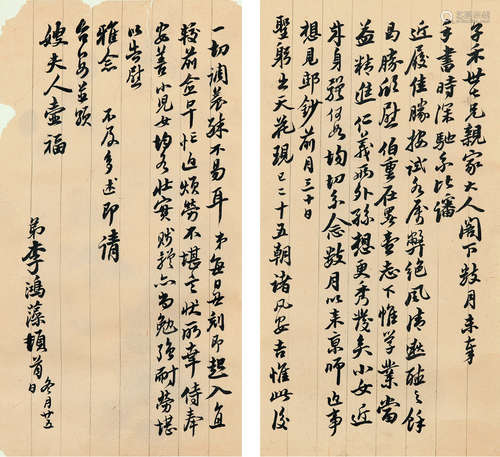 子禾世七兄親家大人閣下數月未奉
手書時深馳系比審
近履佳勝按試各屬弊絕風清
曷勝欣慰伯重在署 下惟學業當
益精進仁義兩外孫想更秀發矣小女近
來身強何如均切系念數月以來京師近事
想見邸鈔前月三十日
聖躬出天花現已二十五朝諸凡安吉惟此後
一切調養殊不易耳弟每日丑刻即起入直
較前益早忙迫煩勞不堪言狀所幸侍奉
安善小兒女均各壯實賤軀亦尚勉強耐勞堪
以告慰
雅念 不及多述即請
台安並頌
嫂夫人壼福
弟李鴻藻頓首 冬月廿五日